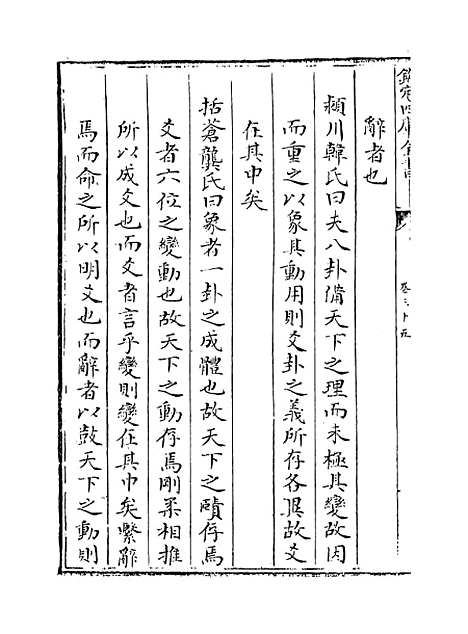 欽定四庫全書
卷三十五
辭者也
潁川韓氏曰夫八卦備天下之理而未極其變故因
而重之以象其動用則爻卦之義所存各異故爻
在其中矣
括蒼龔氏曰象者一卦之成體也故天下之賾存焉
爻者六位之變動也故天下之動存焉剛柔相推
所以成爻也而爻者言乎變則變在其中矣繫辭
焉而命之所以明爻也而辭者以鼓天下之動則